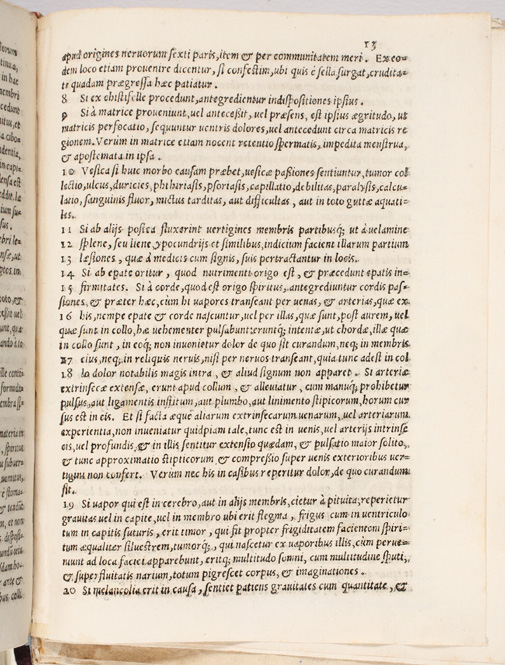 13
apud origines neruorum sexti paris, item & per communitatem meri. Ex eo-
dem loco etiam prouenire dicentur, si confestim, ubi quis è sella surgat, crudita-
te quadam prægressa hæc patiatur.
8 Si ex chistifelle procedunt, antegredientur indispositiones ipsius.
9 Si à matrice proueniunt, uel antecessit, uel præsens, est ipsius ægritudo, ut
matricis perfocatio, sequuntur uentris dolores, uel antecedunt circa matricis re
gionem. Verum in matrice etiam nocent retentio spermatis, impedita menstrua,
& apostemata in ipsa.
10 Vesica si huic morbo causam præbet, uesicæ passiones sentiuntur, tumor col
lectio, ulcus, duricies, phthiriasis, psoriasis, capillatio, debilitas, paralysis, calcu-
latio, sanguinis fluor, mictus tarditas, aut difficultas, aut in toto guttæ aquati-
tes.
11 Si ab alijs posica fluxerint uertigines membris partibusq; ut à uelamine
12 splene, seu liene ypocundrijs et similibus, indicium facient illarum partium
13 læsiones, quæ à medicis cum signis, suis pertractantur in locis.
14 Si ab epate oritur, quod nutrimenti origo est, & præcedunt epatis in-
15 firmitates. Si à corde, quod est origo spiritus, antegrediuntur cordis pas-
siones, & præter hæc, cum hi uapores transeant per uenas, & arterias, quæ ex
16 his, nempe epate & corde nascuntur, uel per illas, quæ sunt, post aurem, uel
quæ sunt in collo, hæ uehementer pulsabunt eruntq; intentæ, ut chordæ, illæ quæ
in collo sunt, in eoq; non inuenietur dolor de quo sit curandum, neq; in membris
17 eius, neq; in reliquis neruis, nisi per neruos transeant, quia tunc adest in col
18 lo dolor notabilis magis intra, & aliud signum non apparet. Si arteriæ
extrinsecæ extensæ, erunt apud collum, & alleuiatur, cum manuq; prohibetur
pulsus, aut ligamentis institum, aut plumbo, aut linimento stipicorum, horum cur
sus est in eis. Et si facta æquè aliarum extrinsecarum uenarum, uel arteriarum
experientia, non inueniatur quidpiam tale, tunc est in uenis, uel arterijs intrinse
cis, uel profundis, & in illis sentitur extensio quædam, & pulsatio maior solito,
& tunc approximatio stipticorum & compressio super uenis exterioribus uer-
tigini non confert. Verum nec his in casibus reperitur dolor, de quo curandum
sit.
19 Si uapor qui est in cerebro, aut in alijs membris, cietur à pituita, reperietur
grauitas uel in capite, uel in membro ubi erit flegma, frigus cum in uentriculo
tum in capitis futuris, erit timor, qui fit propter frigiditatem facientem spiri-
tum æqualiter siluestrem, tumorq;, qui nascetur ex uaporibus illis, cum perue-
niunt ad loca faciei apparebunt, eritq; multitudo somni, cum multitudine sputi,
& superfluitatis narium, totum pigrescet corpus, & imaginationes.
20 Si melancolia erit in causa, sentiet patiens grauitates cum quantitate, &